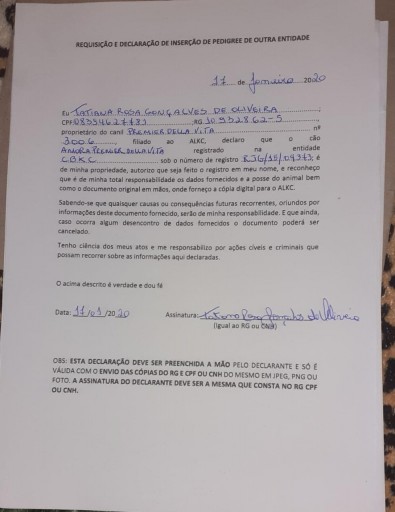 REQUISIÇÃO E DECLARAÇÃO DE INSERÇÃO DE PEDIGREE DE OUTRA ENTIDADE
17 de Janeiro 2020
Eu TATIANA ROSA GONÇALVES DE OLIVEIRA
CPF ;RG
proprietário do canil PREMIER DELLA VITA nº
3006, filiado ao ALKC, declaro que o cão
PREMIER DELLA VITA registrado na entidade
CBKC sob o número de registro é
de minha propriedade, autorizo que seja feito o registro em meu nome, e reconheço
que é de minha total responsabilidade os dados fornecidos e a posse do animal bem
como o documento original em mãos, onde forneço a cópia digital para o ALKC.
Sabendo-se que quaisquer causas ou consequências futuras recorrentes, oriundos por
informações deste documento fornecido, serão de minha responsabilidade. E que ainda,
caso ocorra algum desencontro de dados fornecidos o documento poderá ser
cancelado.
Tenho ciência dos meus atos e me responsabilizo por ações cíveis e criminais que
possam recorrer sobre as informações aqui declaradas.
O acima descrito é verdade e dou fé
Data: 17/01/2020 Assinatura:
(Igual ao RG ou CNH)
OBS: ESTA DECLARAÇÃO DEVE SER PREENCHIDA A MÃO PELO DECLARANTE E SÓ É
VÁLIDA COM O ENVIO DAS CÓPIAS DO RG E CPF OU CNH DO MESMO EM JPEG, PNG OU
FOTO. A ASSINATURA DO DECLARANTE DEVE SER A MESMA QUE CONSTA NO RG CPF
OU CNH.